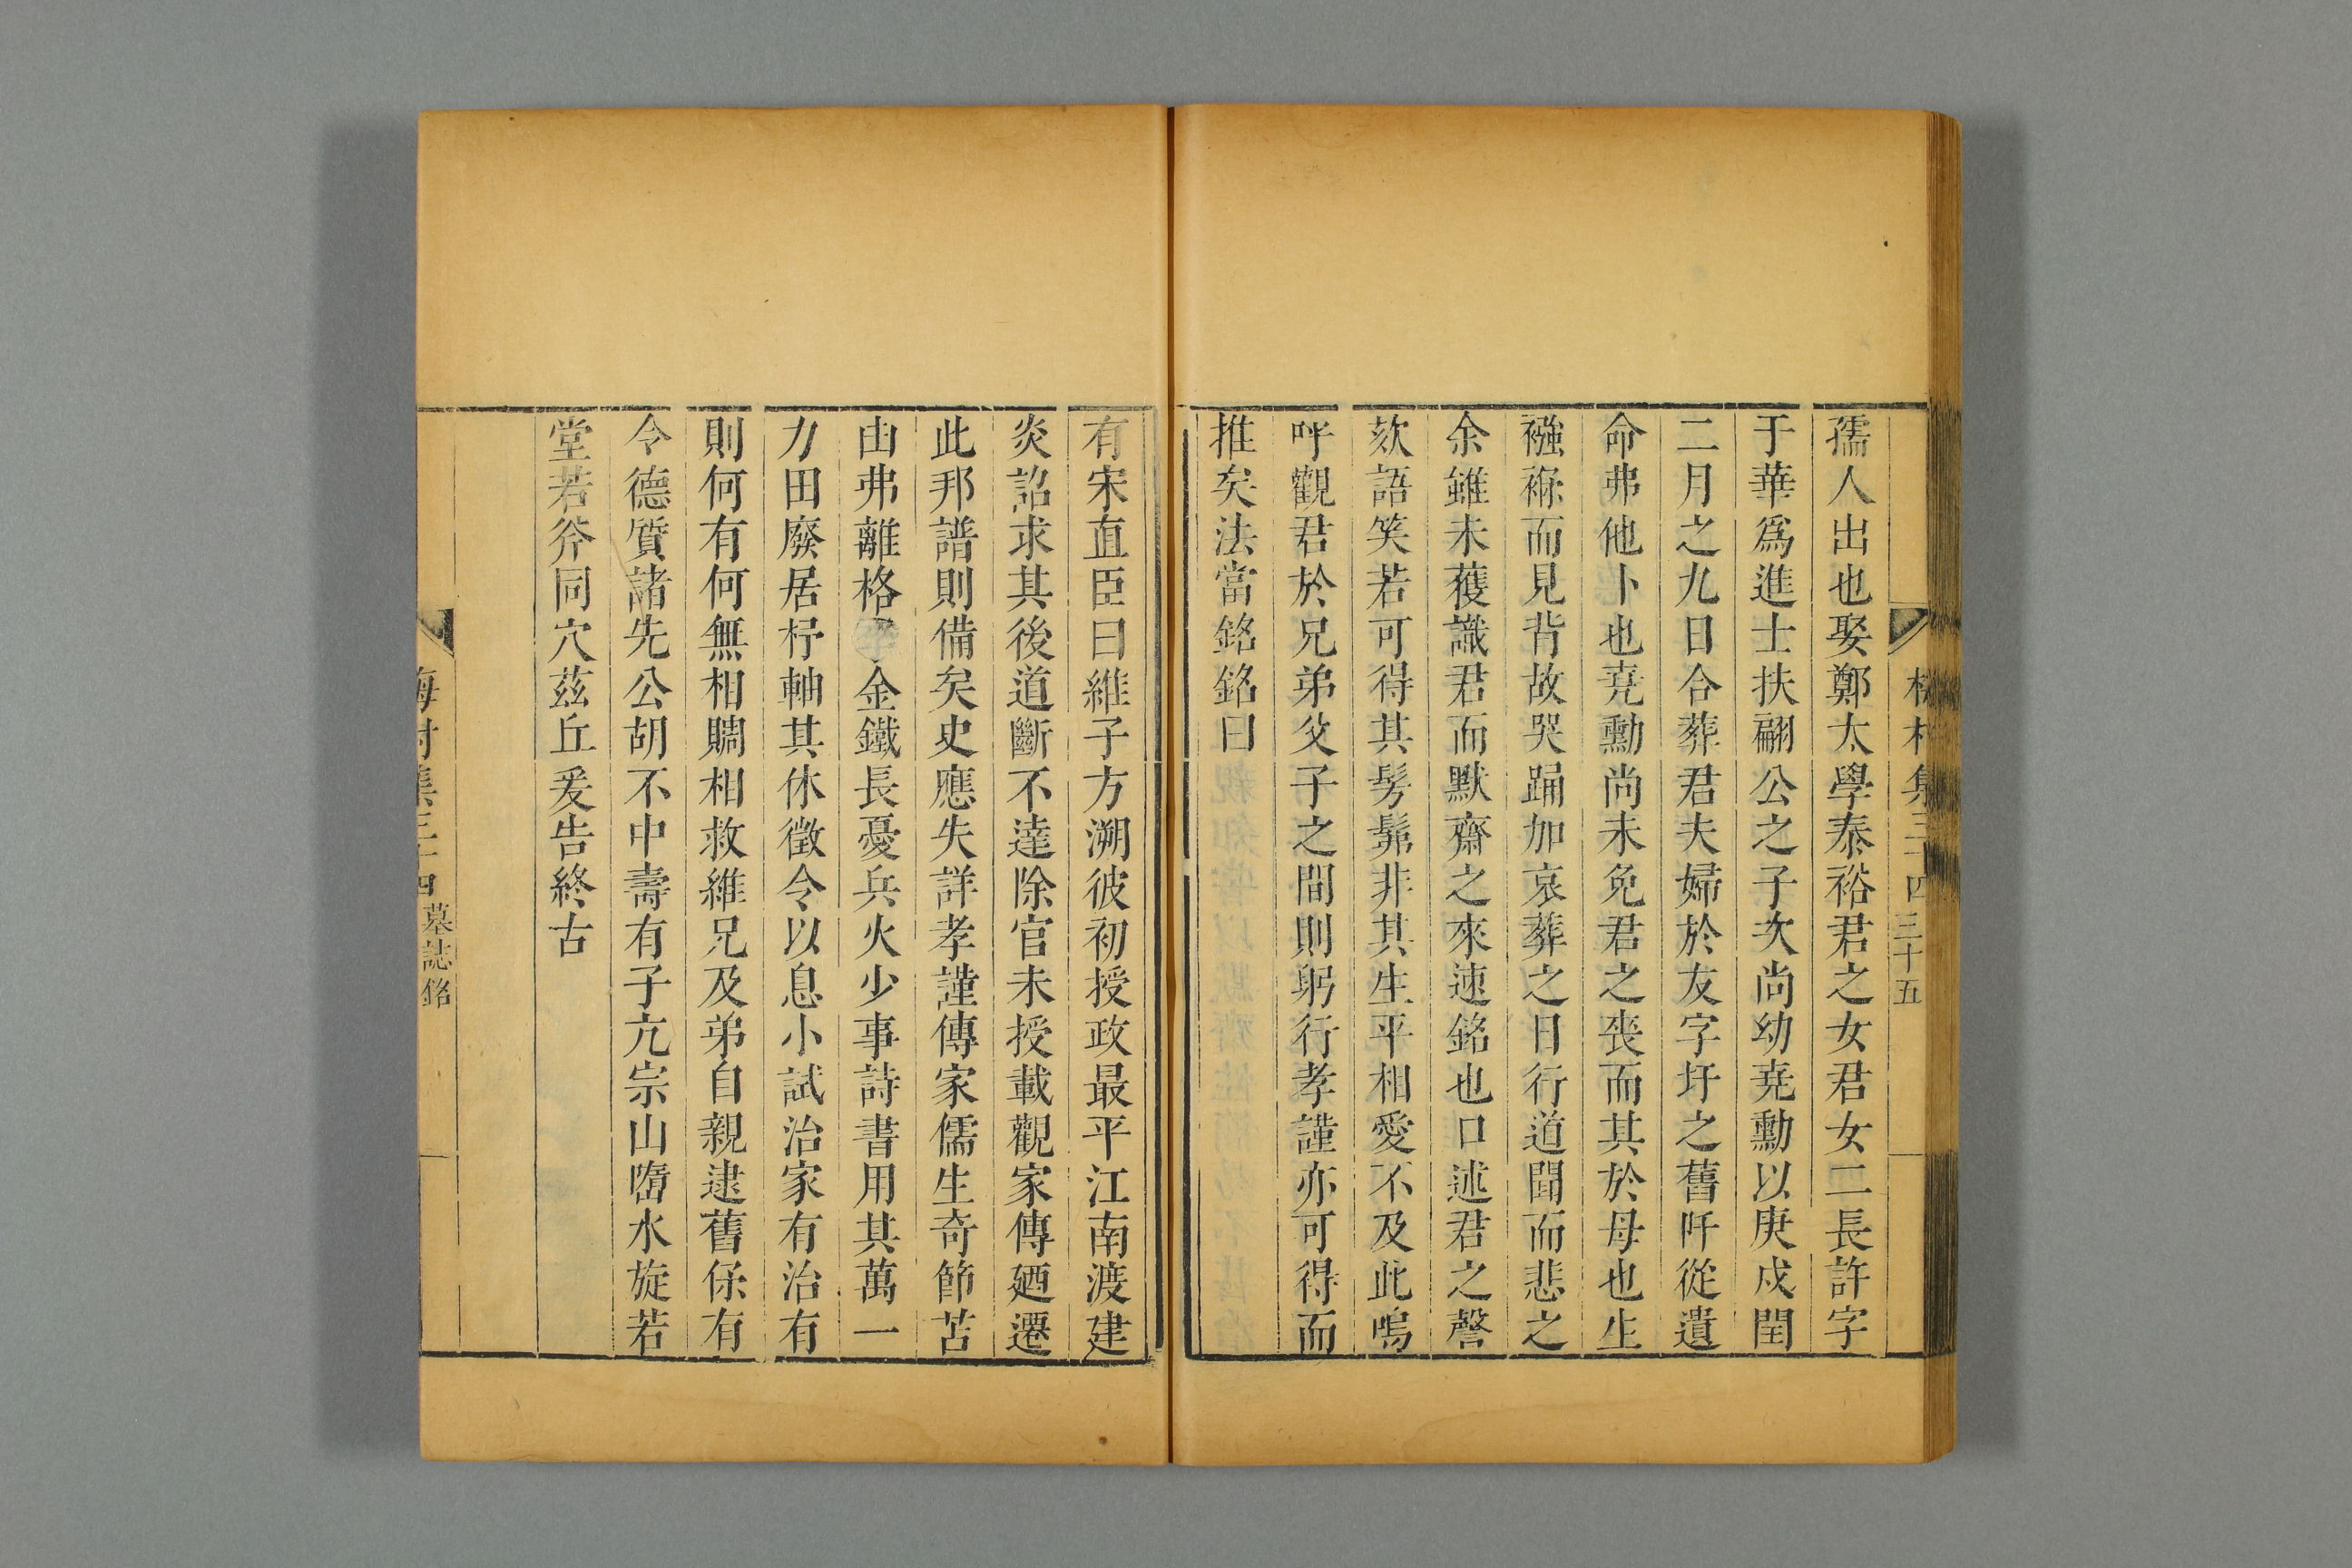 孺人出也娶鄭太學泰裕君之女君女二長許字
于華爲進士扶翮公之子次尚幼堯勳以庚戍閏
二月之九日合葬君夫婦於友字圩之舊阡從遺
命弗他卜也堯勳尚未免君之丧而其於母也生
襁褓而見背故哭踊加哀葬之日行道聞而悲之
余雖未獲識君而默齋之來速銘也口述君之謦
欬語笑若可得其髣髴非其生平相愛不及此嗚
呼觀君於兄弟父子之間則躬行孝謹亦可得而
推矣法當銘銘曰
三十五
有宋直臣曰維子方溯彼初授政最平江南渡建
炎詔求其後道斷不達除官未授載觀家傳廼遷
此邦譜則備矣史應失詳孝謹傳家儒生奇節苦
由弗離格 金鐵長憂兵火少事詩書用其萬一
力田廢居杼軸其休徵令以息小試治家有治有
則何有何無相賙相救維兄及弟自親逮舊係有
令德質諸先公胡不中壽有子亢宗山嶞水旋若
堂若斧同穴茲丘爰告終古
墓誌銘